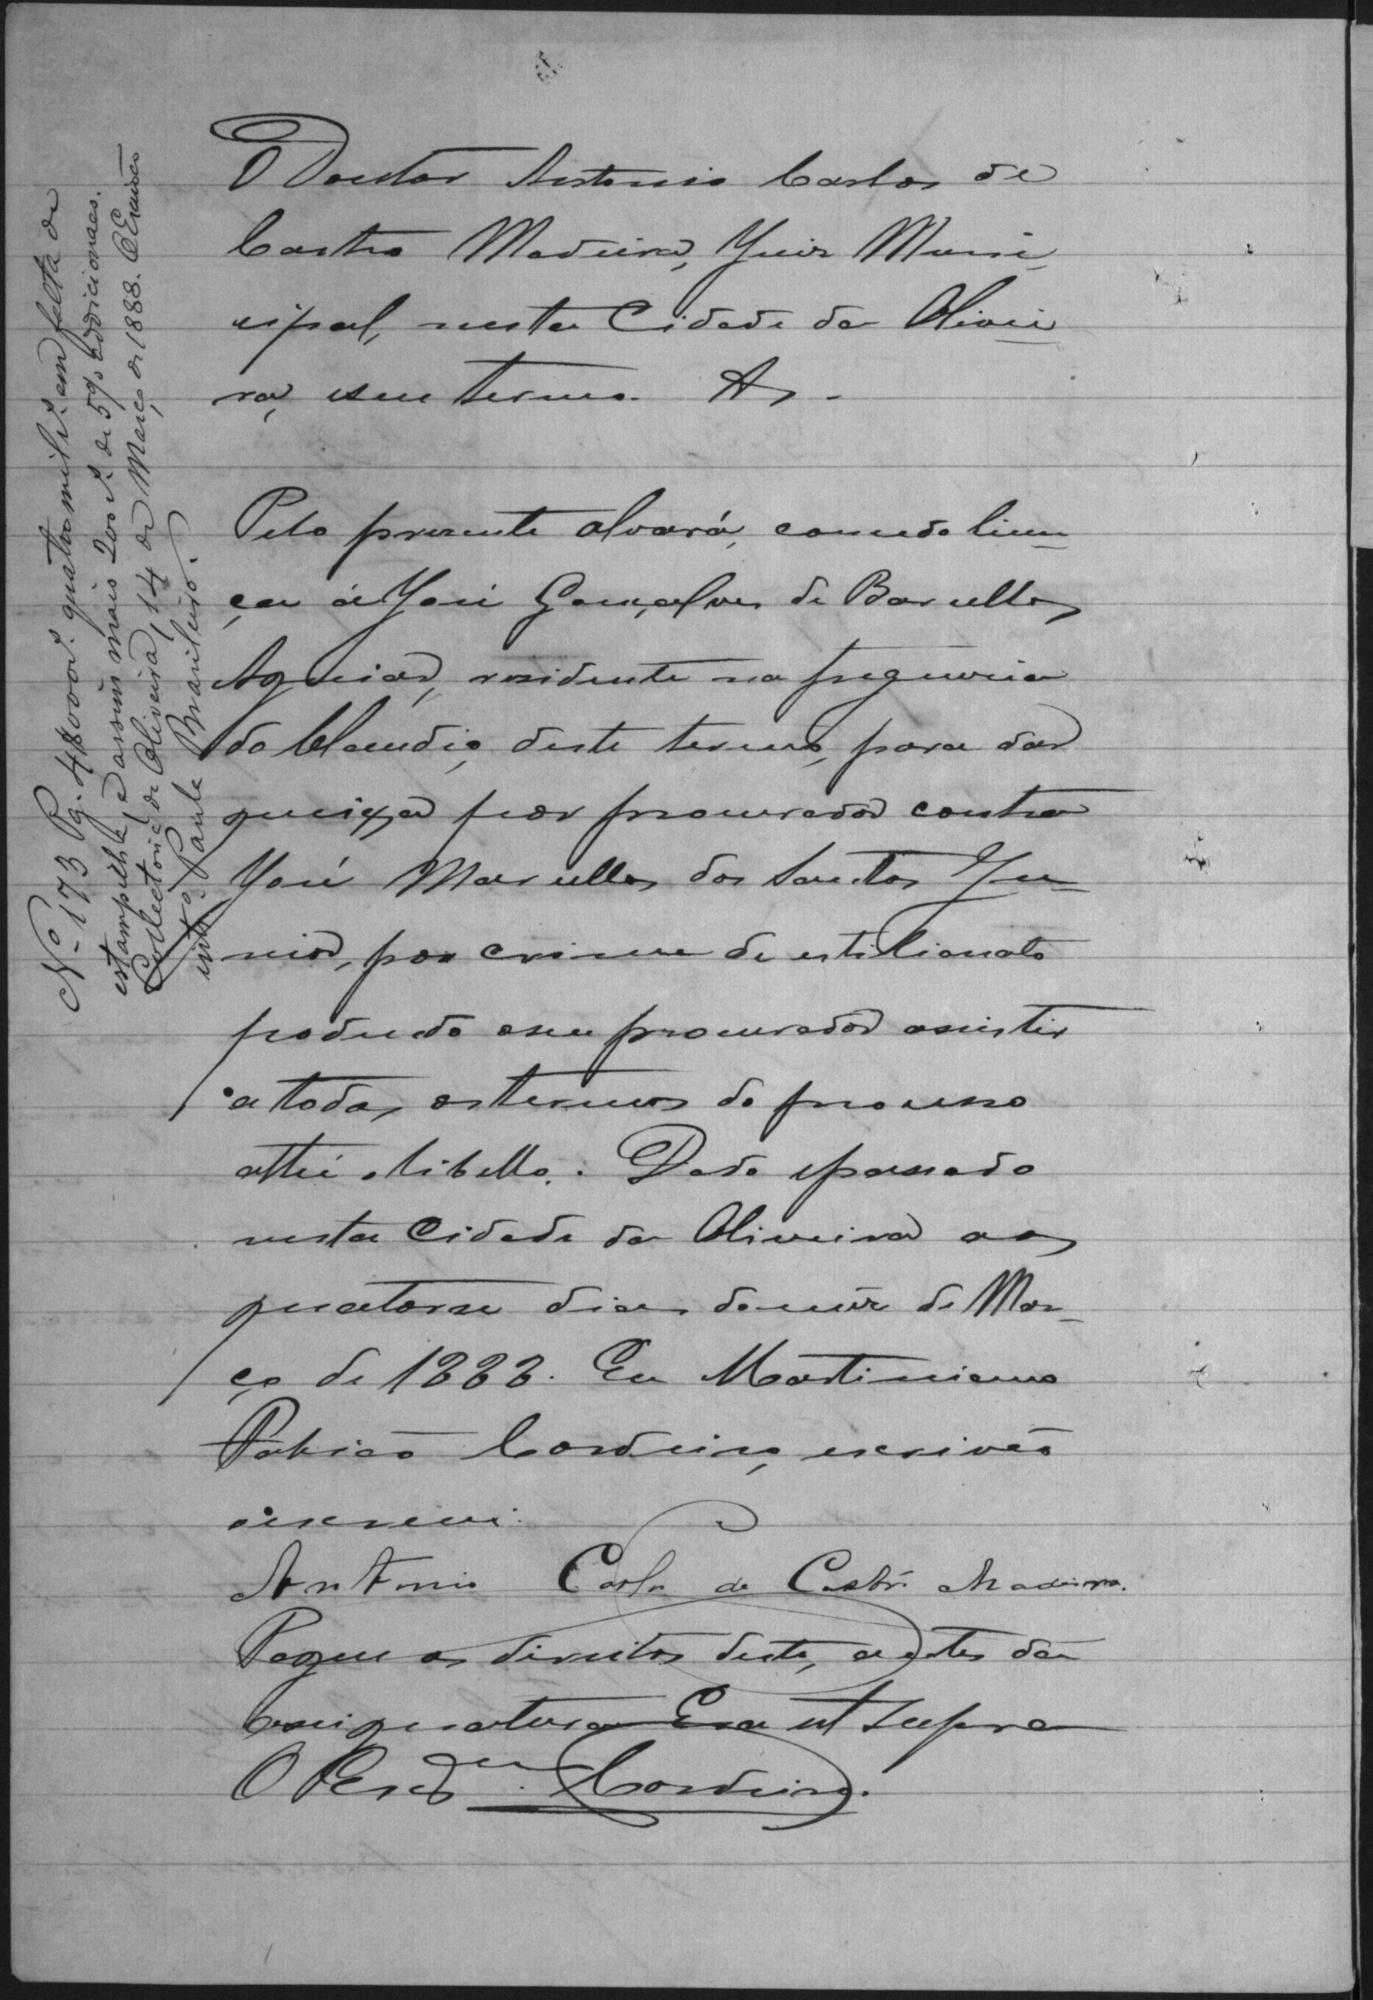 O Doutor Antonio Carlos de
Castro Madeira, Juiz Muni-
cipal, nesta Cidade da Olivei-
ra, e seu termo. &.
Pelo presente alvará, concedo licen-
ça á José Gonçalves de Barcellos
Aguiar, residente na freguesia
do Claudio, deste termo, para dar
queixa por procurador contra
José Marcellos dos Santos Ju-
nior, por crime de estelionato
podendo o seu procurador assistir
a todos os termos do processo
atté o libello. Dado e passado
nesta Cidade da Oliveira aos
quatorse dias do mêz de Mar-
ço de 1888. Eu Martiniano
Patricio Cordeiro, escrivão
o escrevi.
Antonio Carlos de Castro Madeira.
Pague os direitos deste, antes da
assignatura Era ut supra
O Escr.am Cordeiro.
Nº 173 Pg. 4$000 rs. quatro mil rs. em falta de
estampilha, e assim mais 200 rs. de 5% addicionaes.
Collectoria de Oliveira, 14 de Março de 1888. O Escrivão
Paula Brasileiro.